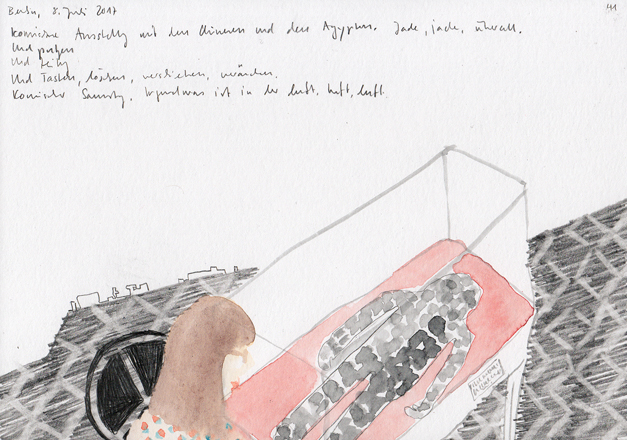 Berlin, 8. Juli 2017
41
Komische Ausstellung mit den Chinesen und den Ägyptern. Jade, Jade, überall.
Und putzen
Und
Und Tasten, löschen, verschieben, verändern.
Komischer Samstag. Irgendwas ist in der Luft, Luft, Luft.